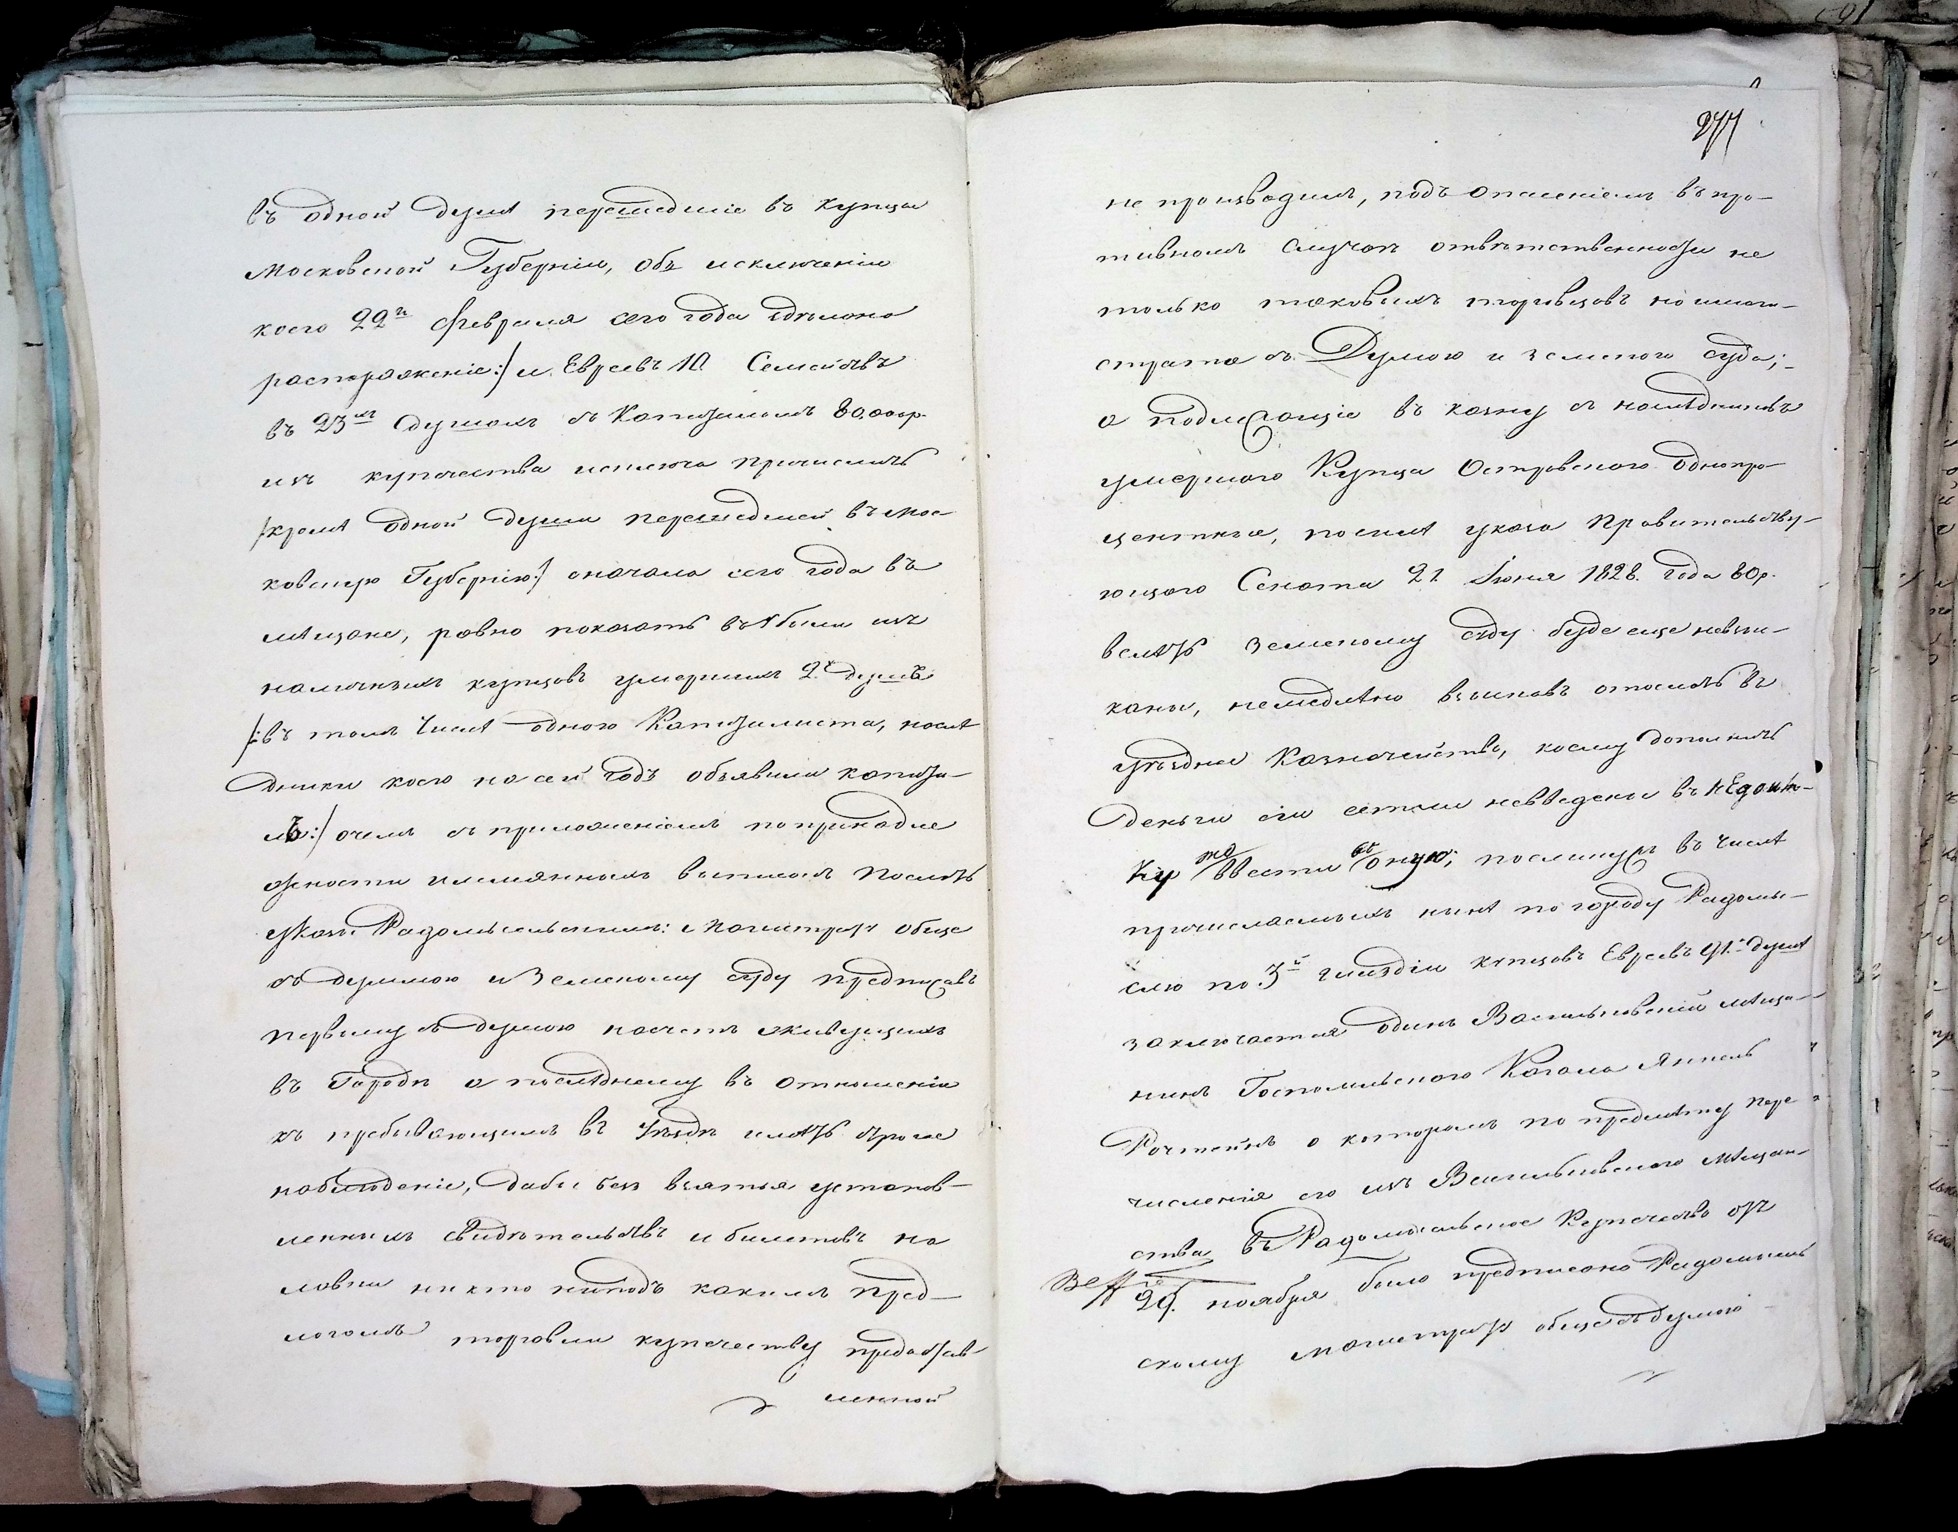 въ одной душѣ перешедшіе въ купцы
Московской Губерніи, объ исключеніи
коего 22го февраля сего года здѣлано
распоряженіе:/ и Евреевъ 10 Семействъ
въ 23хъ душахъ съ Капиталомъ 80.000р.
изъ купечества исключа причислить
/кромѣ одной души перешедшей въ Мос-
ковскую Губернію:/ сначала сего года въ
мѣщане, равно показать въ убыли изъ
наличныхъ купцовъ умершихъ 2хъ душъ
/:въ томъ числѣ одного Капиталиста, наслѣ
дники коего на сей годъ объявили капита-
лъ:/ о чемъ съ приложеніемъ по принадле
жности имянныхъ выписокъ послать
указы Радомысльскимъ: Магистрату обще
съ думою и Земскому суду предписавъ
первому съ думою насчетъ живущихъ
въ Городѣ а послѣднему въ отношеніи
къ пребывающимъ въ Уѣздѣ имѣть строгое
наблюденіе, дабы безъ взятья установ-
ленныхъ свидѣтельствъ и билетовъ на
лавки никто ни подъ какимъ пред-
логомъ торговли купечеству предостав-
ленной
277
не производилъ, подъ опасеніемъ въ про-
тивномъ случаѣ отвѣтственности не
только таковыхъ торговцовъ но и маги-
страта съ Думою и земского суда;
а подлежащіе въ казну съ наслѣдниковъ
умершаго Купца Островского однопро-
центные, по силѣ указа Правительству-
ющаго Сената 21 Іюня 1828. года 80р.
велѣть земскому суду буде еще невзы-
каны, немедлѣнно взыскавъ отослать въ
уѣздное Казначейство, коему дополнить
деньги сіи естли невведены въ недоим-
ку то ввести въ оную; поелику въ числѣ
причисляемыхъ нынѣ по городу Радомы-
слю по 3й гильдіи купцовъ Евреевъ 91й душѣ
заключается одинъ Васильковскій мѣща-
нинъ Гостомльского Кагала Янкель
Ротштейнъ о которомъ по предмѣту пере
численія его изъ Васильковского мѣщан-
ства въ Радомысльское Купечество отъ
29. ноября было предписано Радомысль
скому магистрату обще съ думою